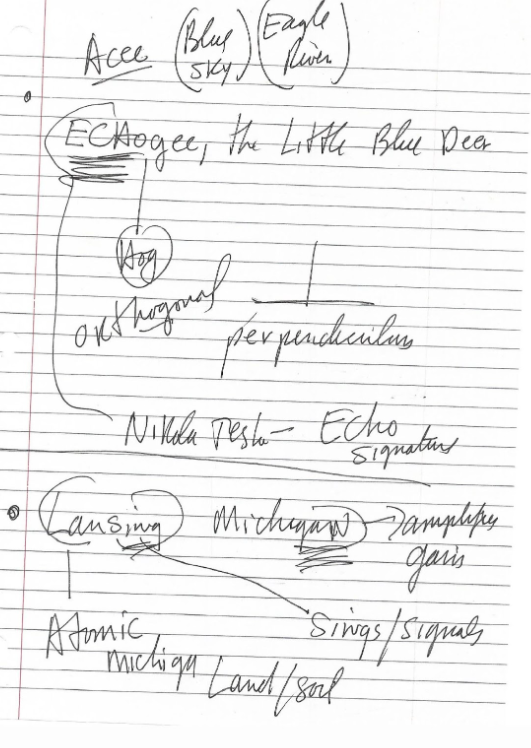 Acee (Blue Sky) (Eagle River)
ECHogee, the Little Blue Deer
Hog
orthogonal
perpendicular
Nikola Tesla - Echo
Signature
Lansing Michigan → amplifies
gain
Atomic Sings/Signals
Michiga Land/soil